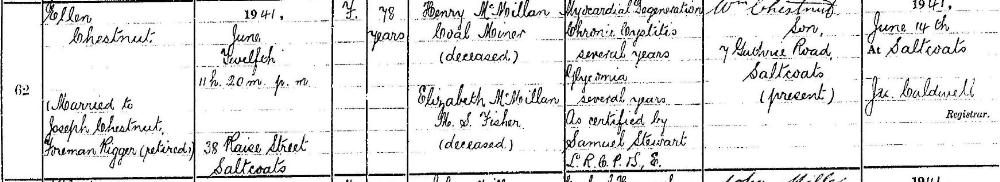 62
Ellen
Chestnut
(Married to
Joseph Chestnut,
Foreman Rigger (retired)
1941,
June
Twelfth
11h. 20m. p.m.
38 Raise Street
Saltcoats
F.
78
years
Henry McMillan
Coal Miner
(deceased)
Elizabeth McMillan
M. S. Fisher
(deceased)
Myocardial Degeneration
Chronic Cystitis
several years
several years
As certified by
Samuel Stewart
L.R.C.P.S, E.
Wm Chestnut
Son,
7 Guthrie Road,
Saltcoats
(present)
1941,
June 14th
At Saltcoats
Jas Caldwell
Registrar.
1941